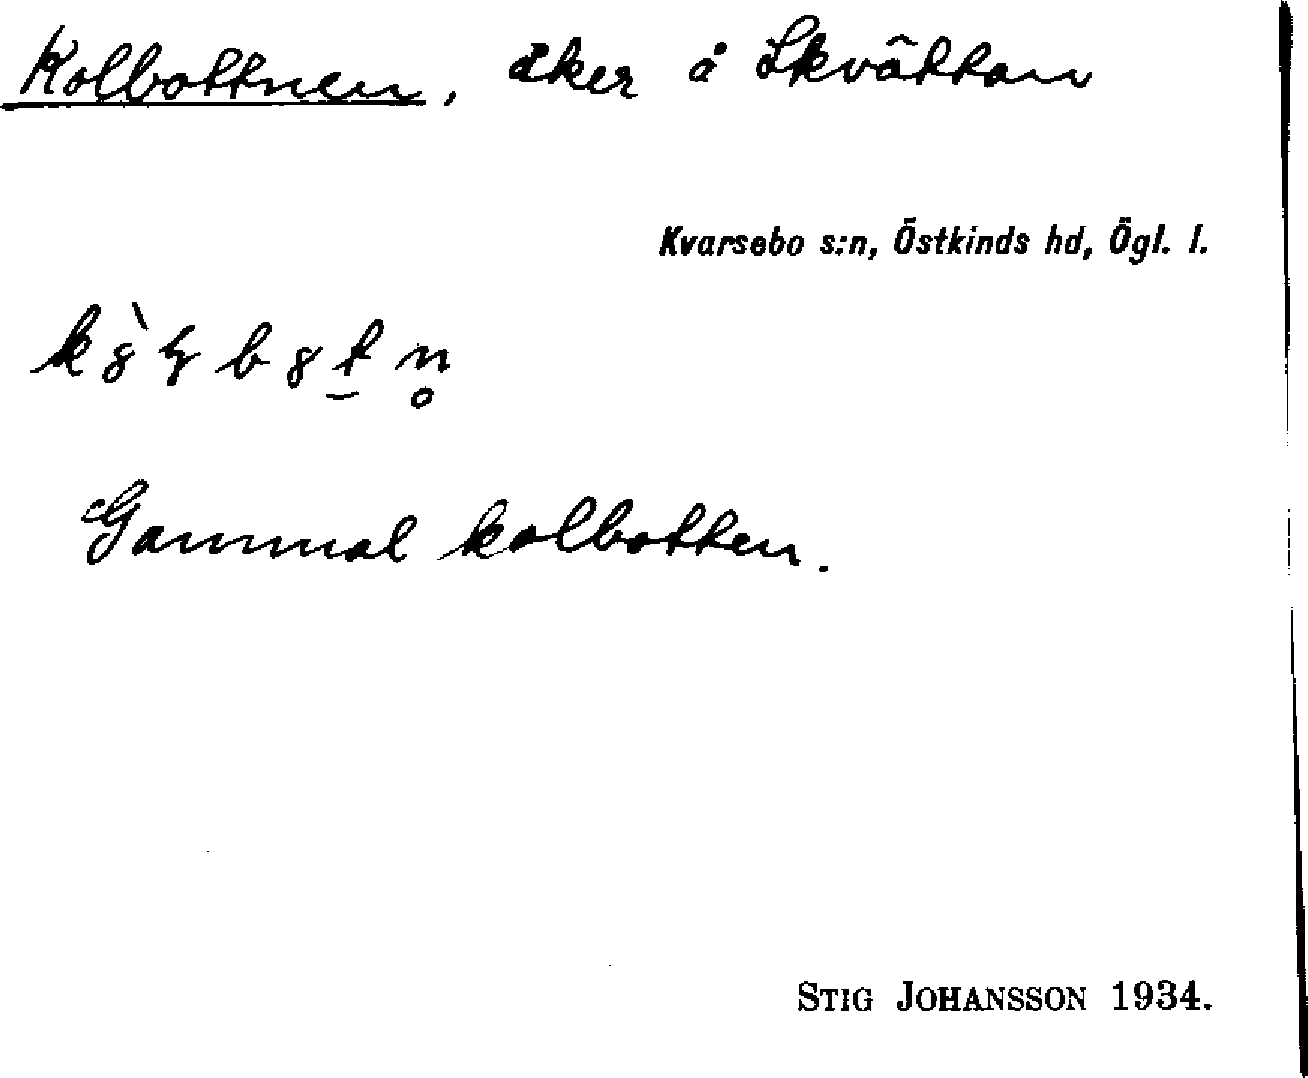 Kolbottnen, åker å Skvättan
Kvarsebo s:n, Östkinds hd, Ögl. l.
Gammal kolbotten.
STIG JOHANSSON 1934.